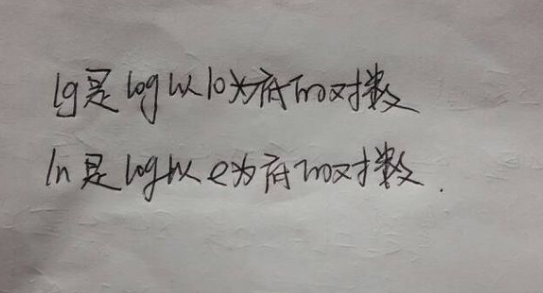 lg是log以10为底的对数
ln是log以e为底的对数.